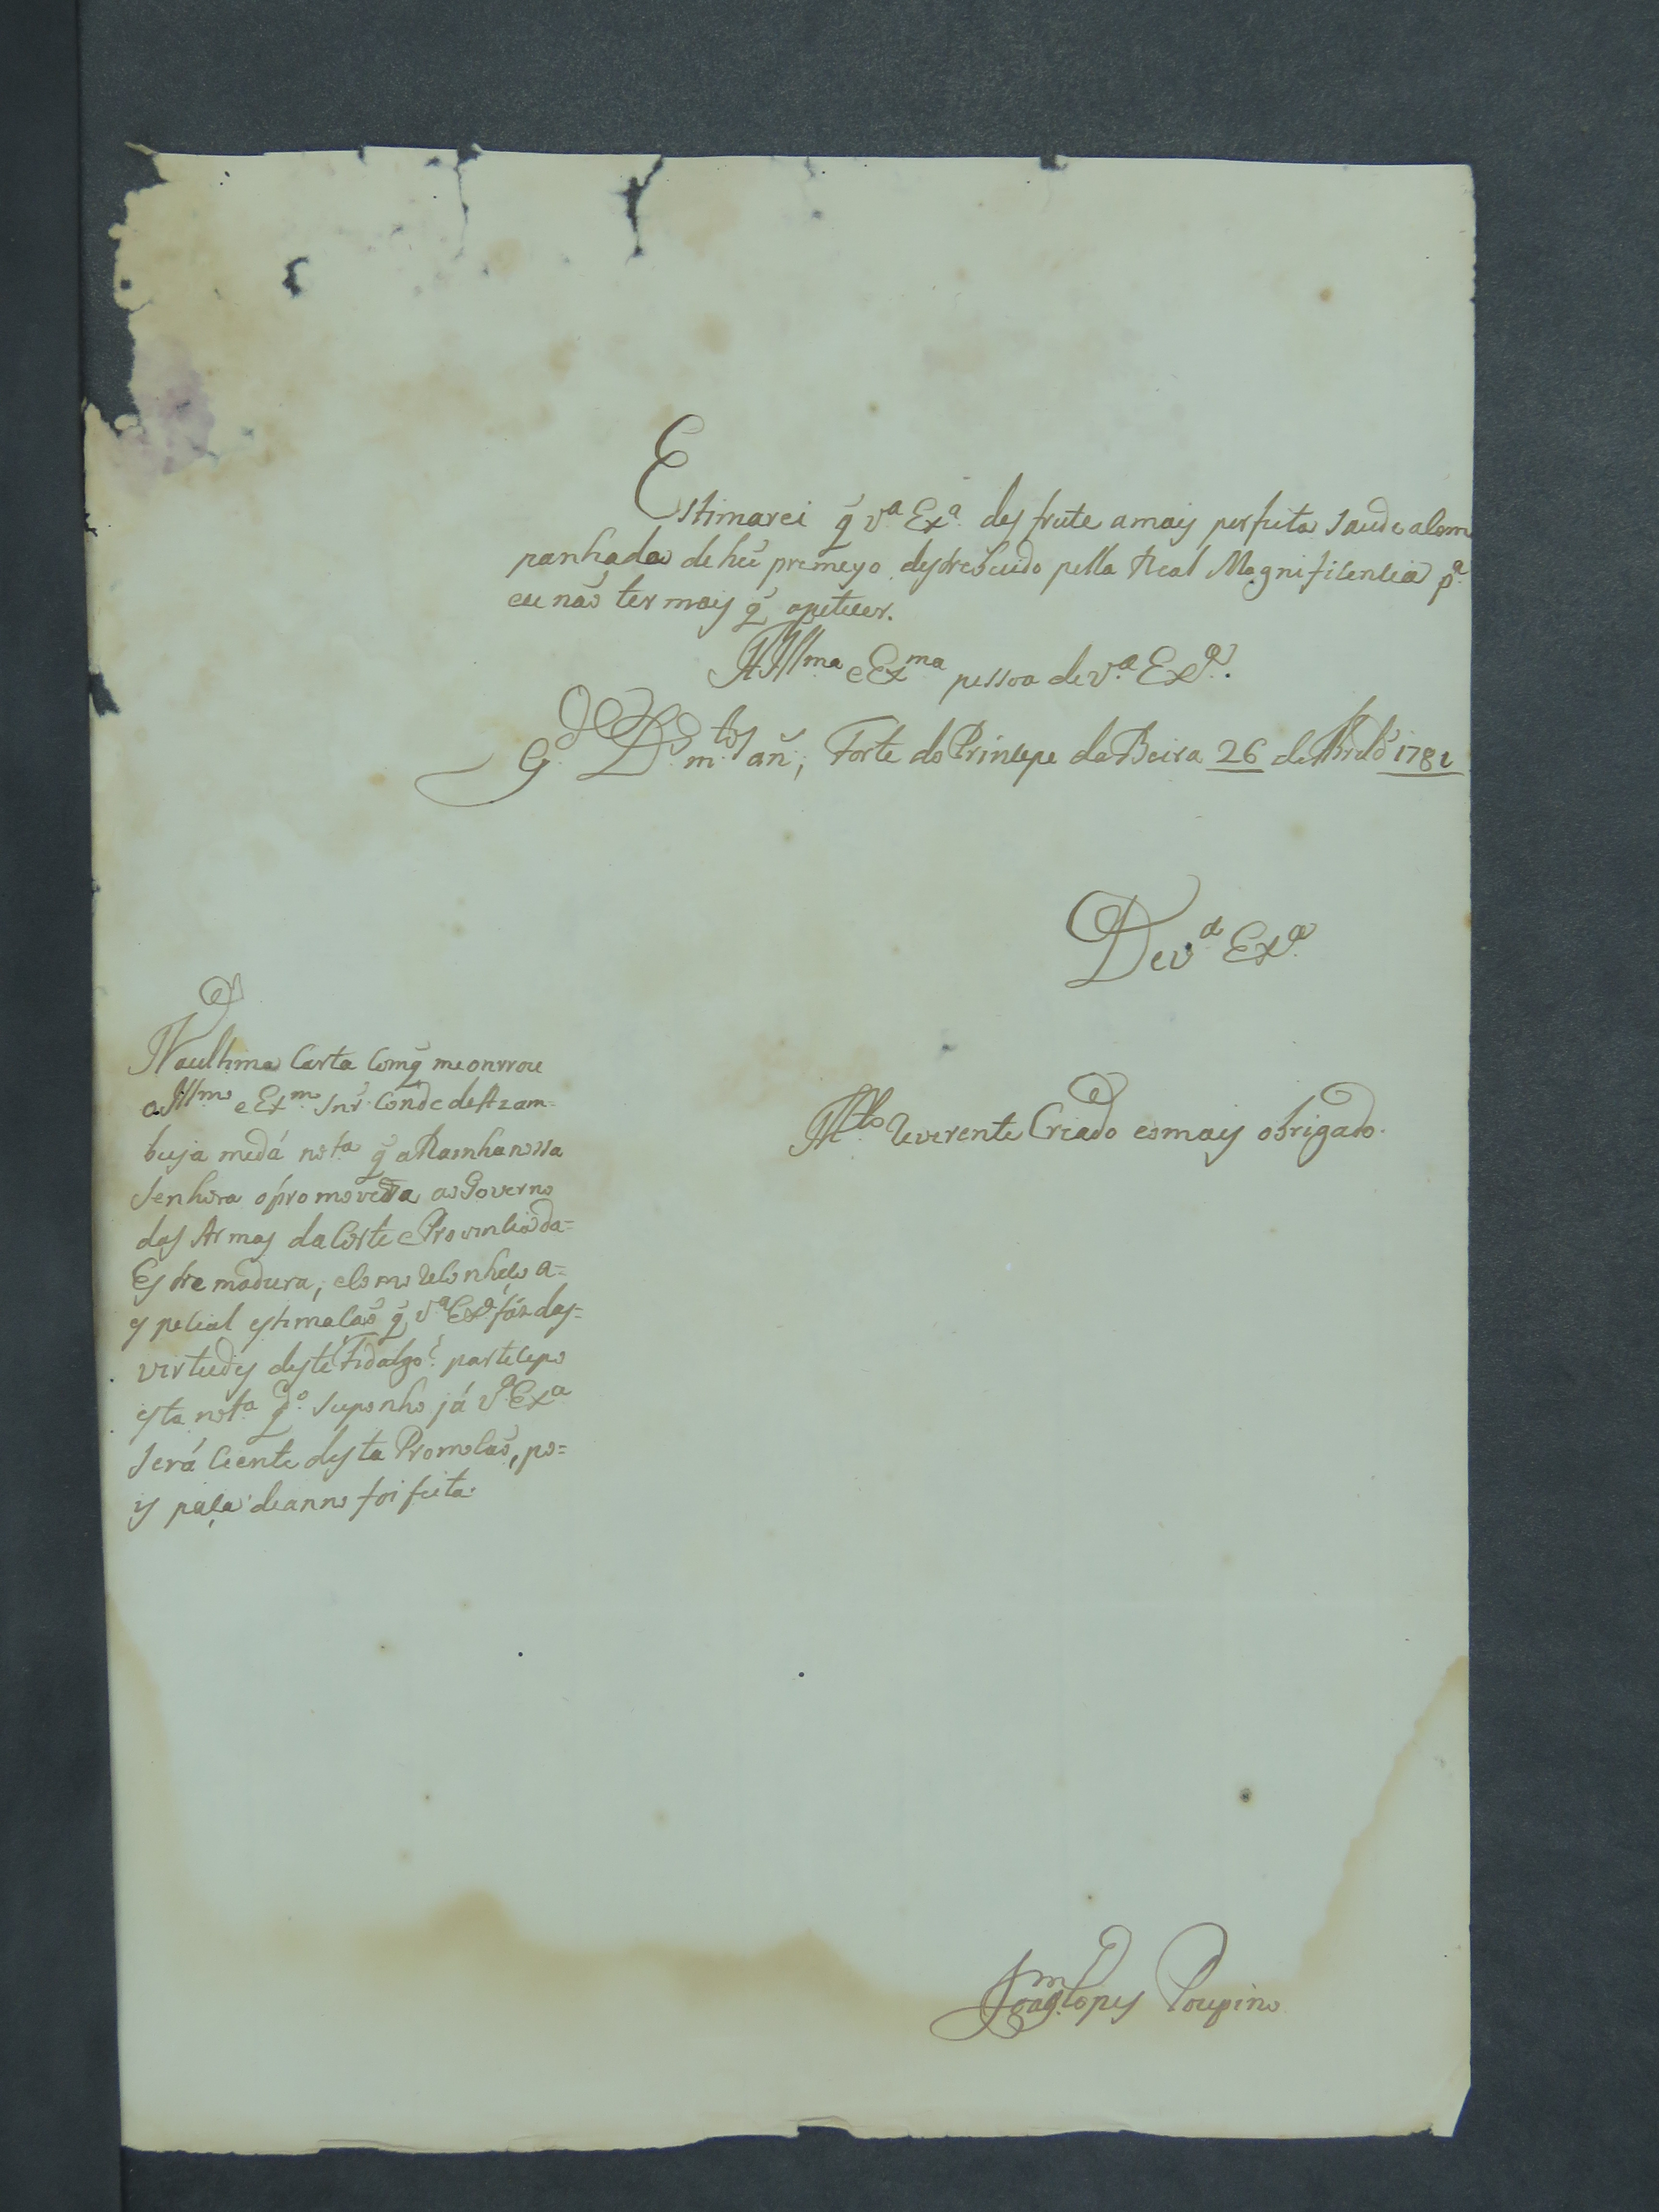 Estimarei q̃ v.ª Ex.ª desfrute a mais perfeita saude acom
panhada de hũ premeyo destrebuido pella Real Magnificencia p.ª
eu naõ ter mais q̃ apetecer.
A Ill.ma e Ex.ma pessoa de v.ª Ex.ª.
G.de D.s m.tos añ, Forte do Princepe da Beira 26 de Abril de 1781
De v.ª Ex.ª
M.to reverente Criado e o mais obrigado.
Na ultima Carta com q̃ me onrrou
o Ill.mo e Ex.mo Snr̃ Conde de Azam-
buja me dá not.a q̃ a Rainha nossa
Senhora o promovera ao Governo
das Armas da Corte e Provincia da=
Estremadura, e como reconheço a=
especial estimaçaõ q̃ v.ª Ex.ª fáz das=
virtudes deste Fidalgo partecipo
esta not.a q̃ suponho já v.ª Ex.ª
será ciente desta Promoçaõ, po=
is paça de anno foi feita.
Joaq.m Lopes Poupino